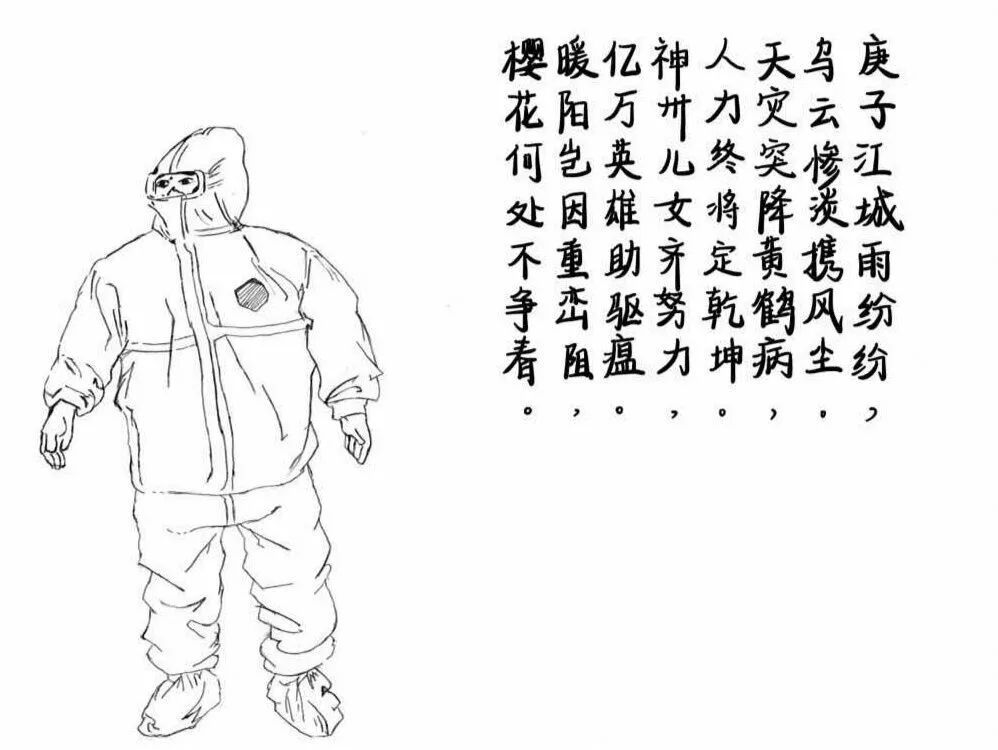 庚子江城雨纷纷，
乌云惨淡携风尘。
天灾突降黄鹤病，
人力终将定乾坤。
神州儿女齐努力，
亿万英雄助驱瘟。
暖阳岂因重峦阻，
樱花何处不争春。